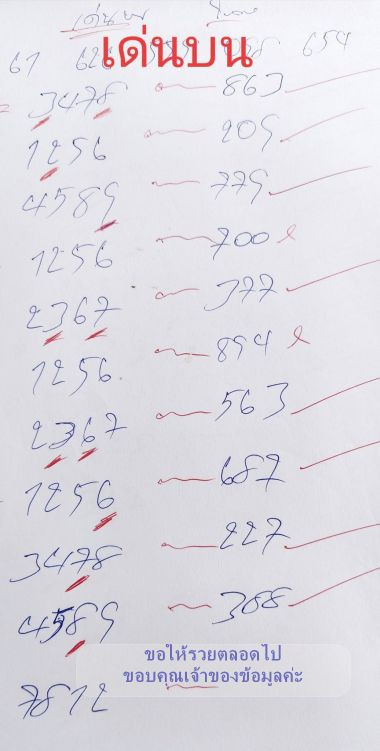 เด่นบน
67 626 654
3478 863
1256 209
4589 779
1256 700 x
2367 377
1256 894 x
2367 563
1256 687
3478 227
4589 388
7812
ขอให้รวยตลอดไป
ขอบคุณเจ้าของข้อมูลค่ะ